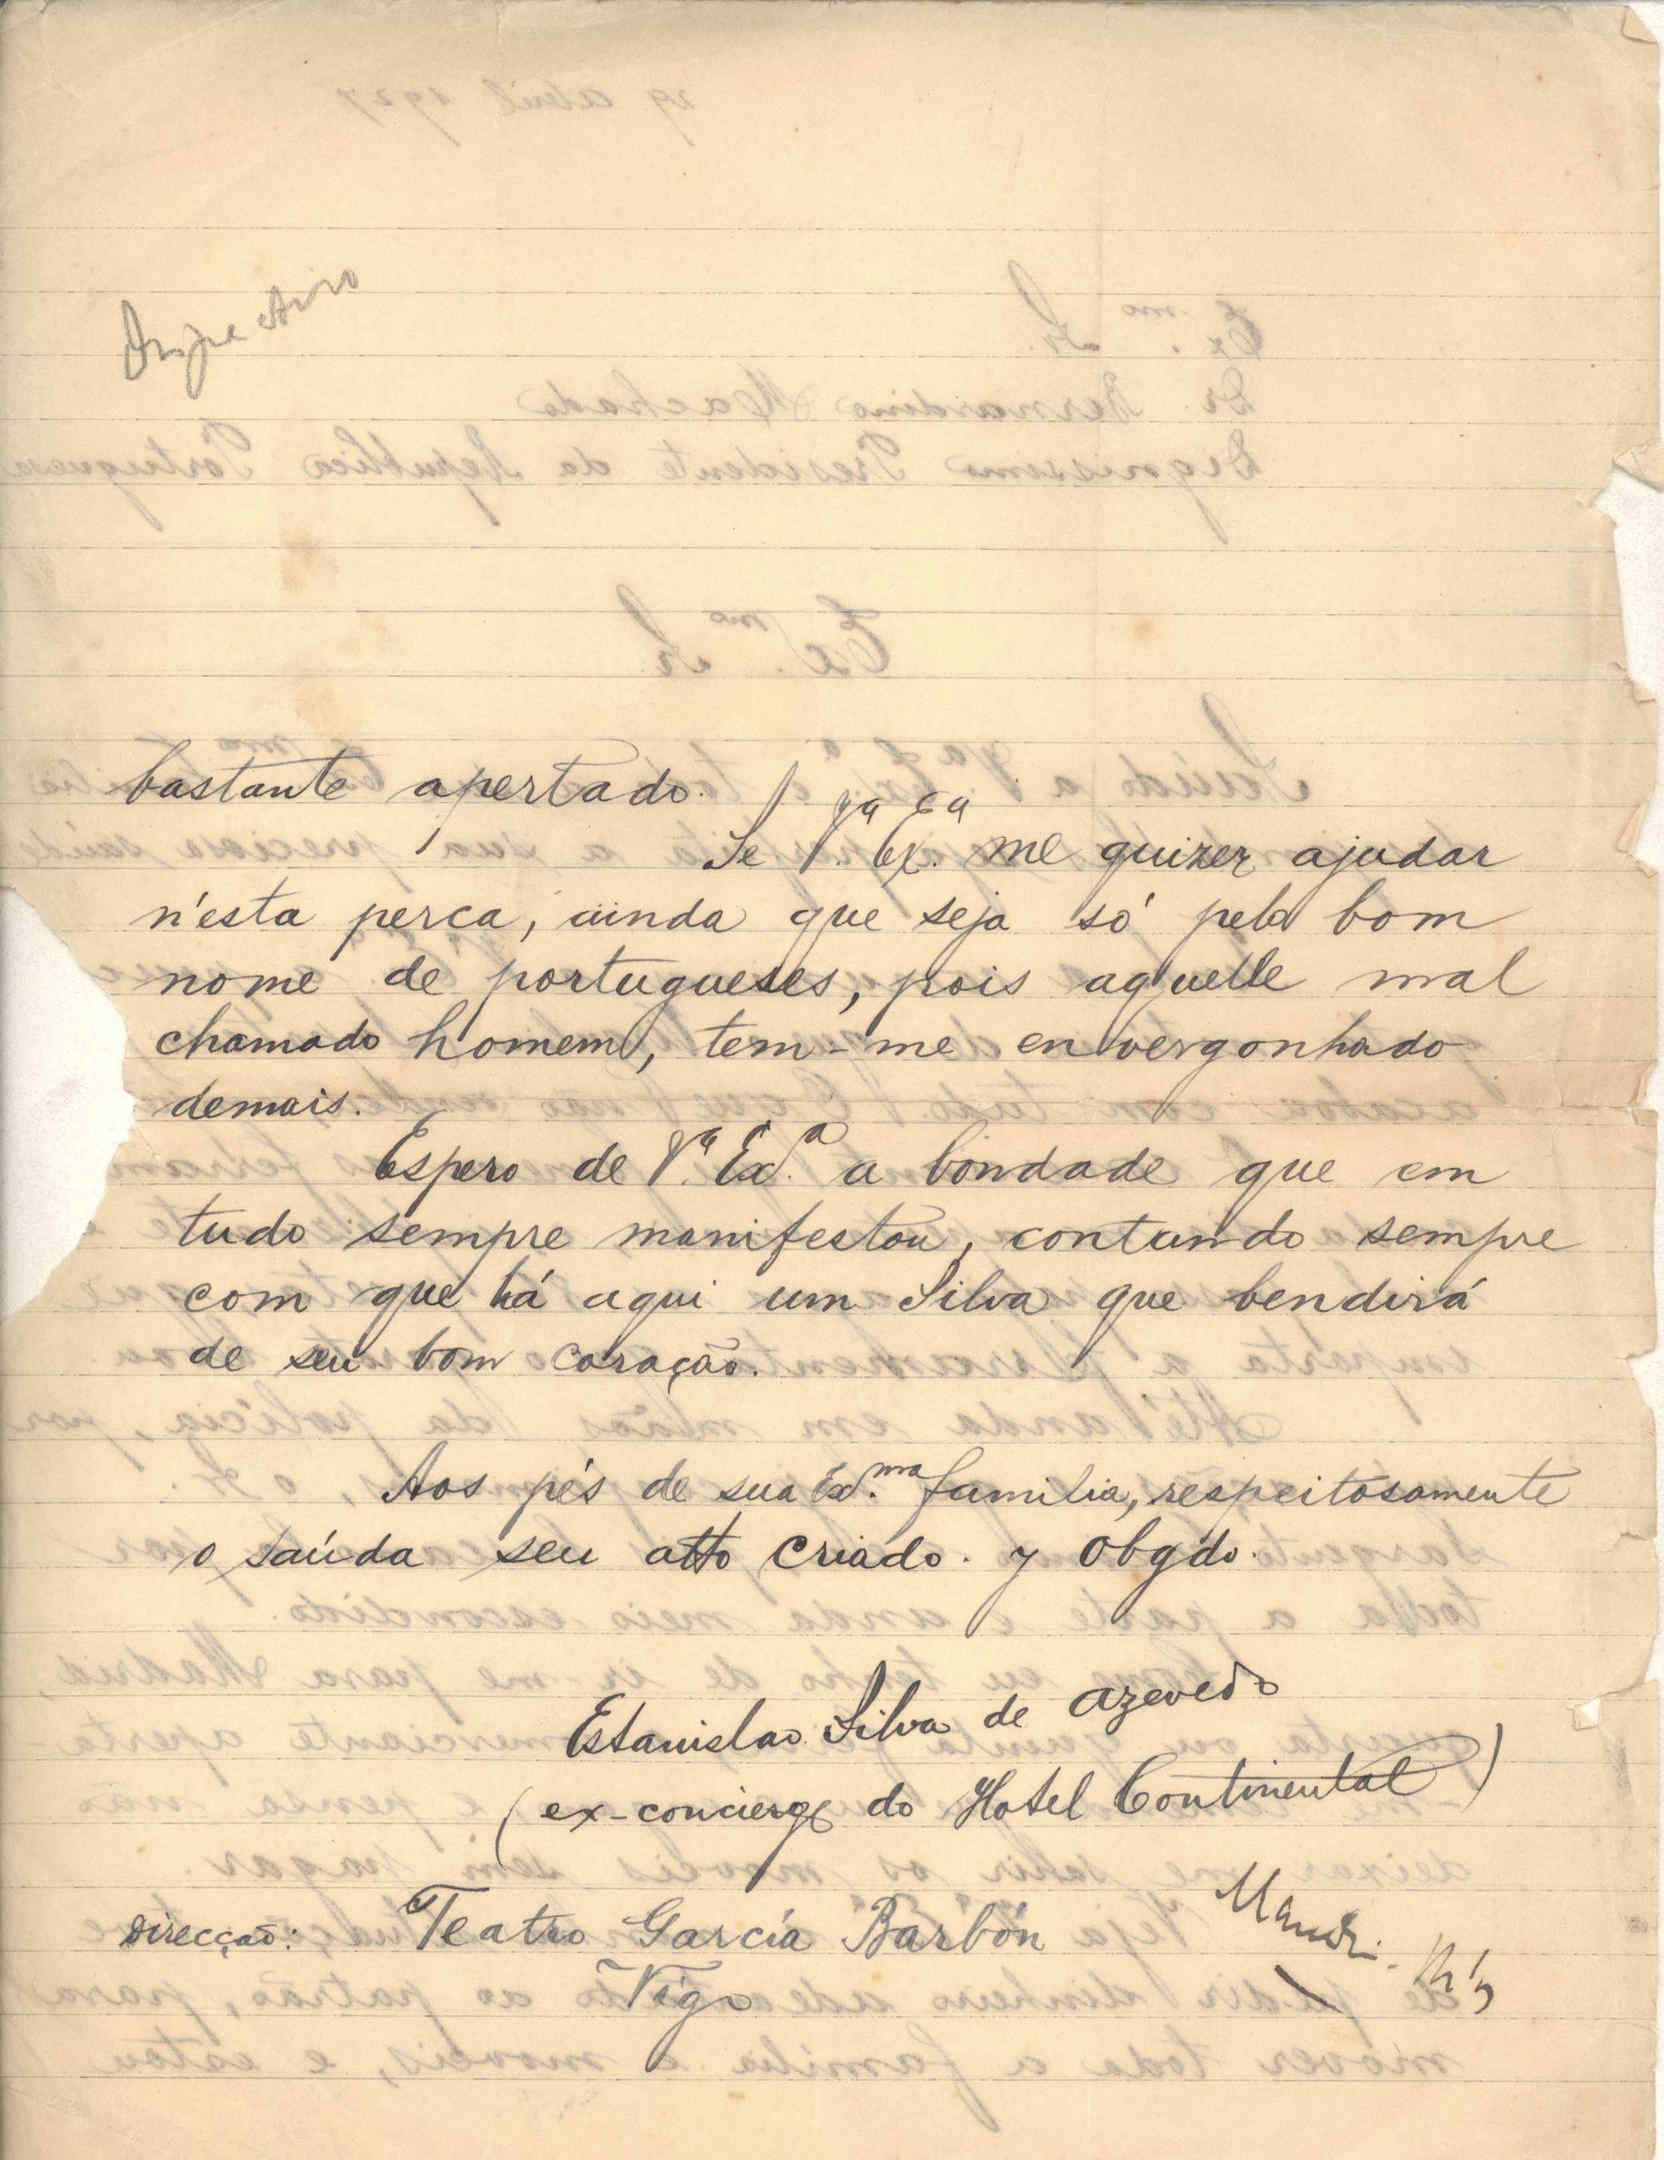 bastante apertado.
Se V.ª Ex.ª me quizer ajudar
n'esta perca, ainda que seja só pelo bom
nome de portugueses, pois aquelle mal
chamado homem, tem-me envergonhado
demais.
Espero de V.ª Ex.ª a bondade que em
tudo sempre manifestou, contando sempre
com que há aqui um Silva que bendirá
de seu bom coração.
Aos pés de sua Ex.ma familia, respeitosamente
o saúda seu atto criado. y obgdo.
Estanislao Silva de Azevedo
(ex-concierge do Hotel Continental)
Direcção: Teatro García Barbón
Vigo